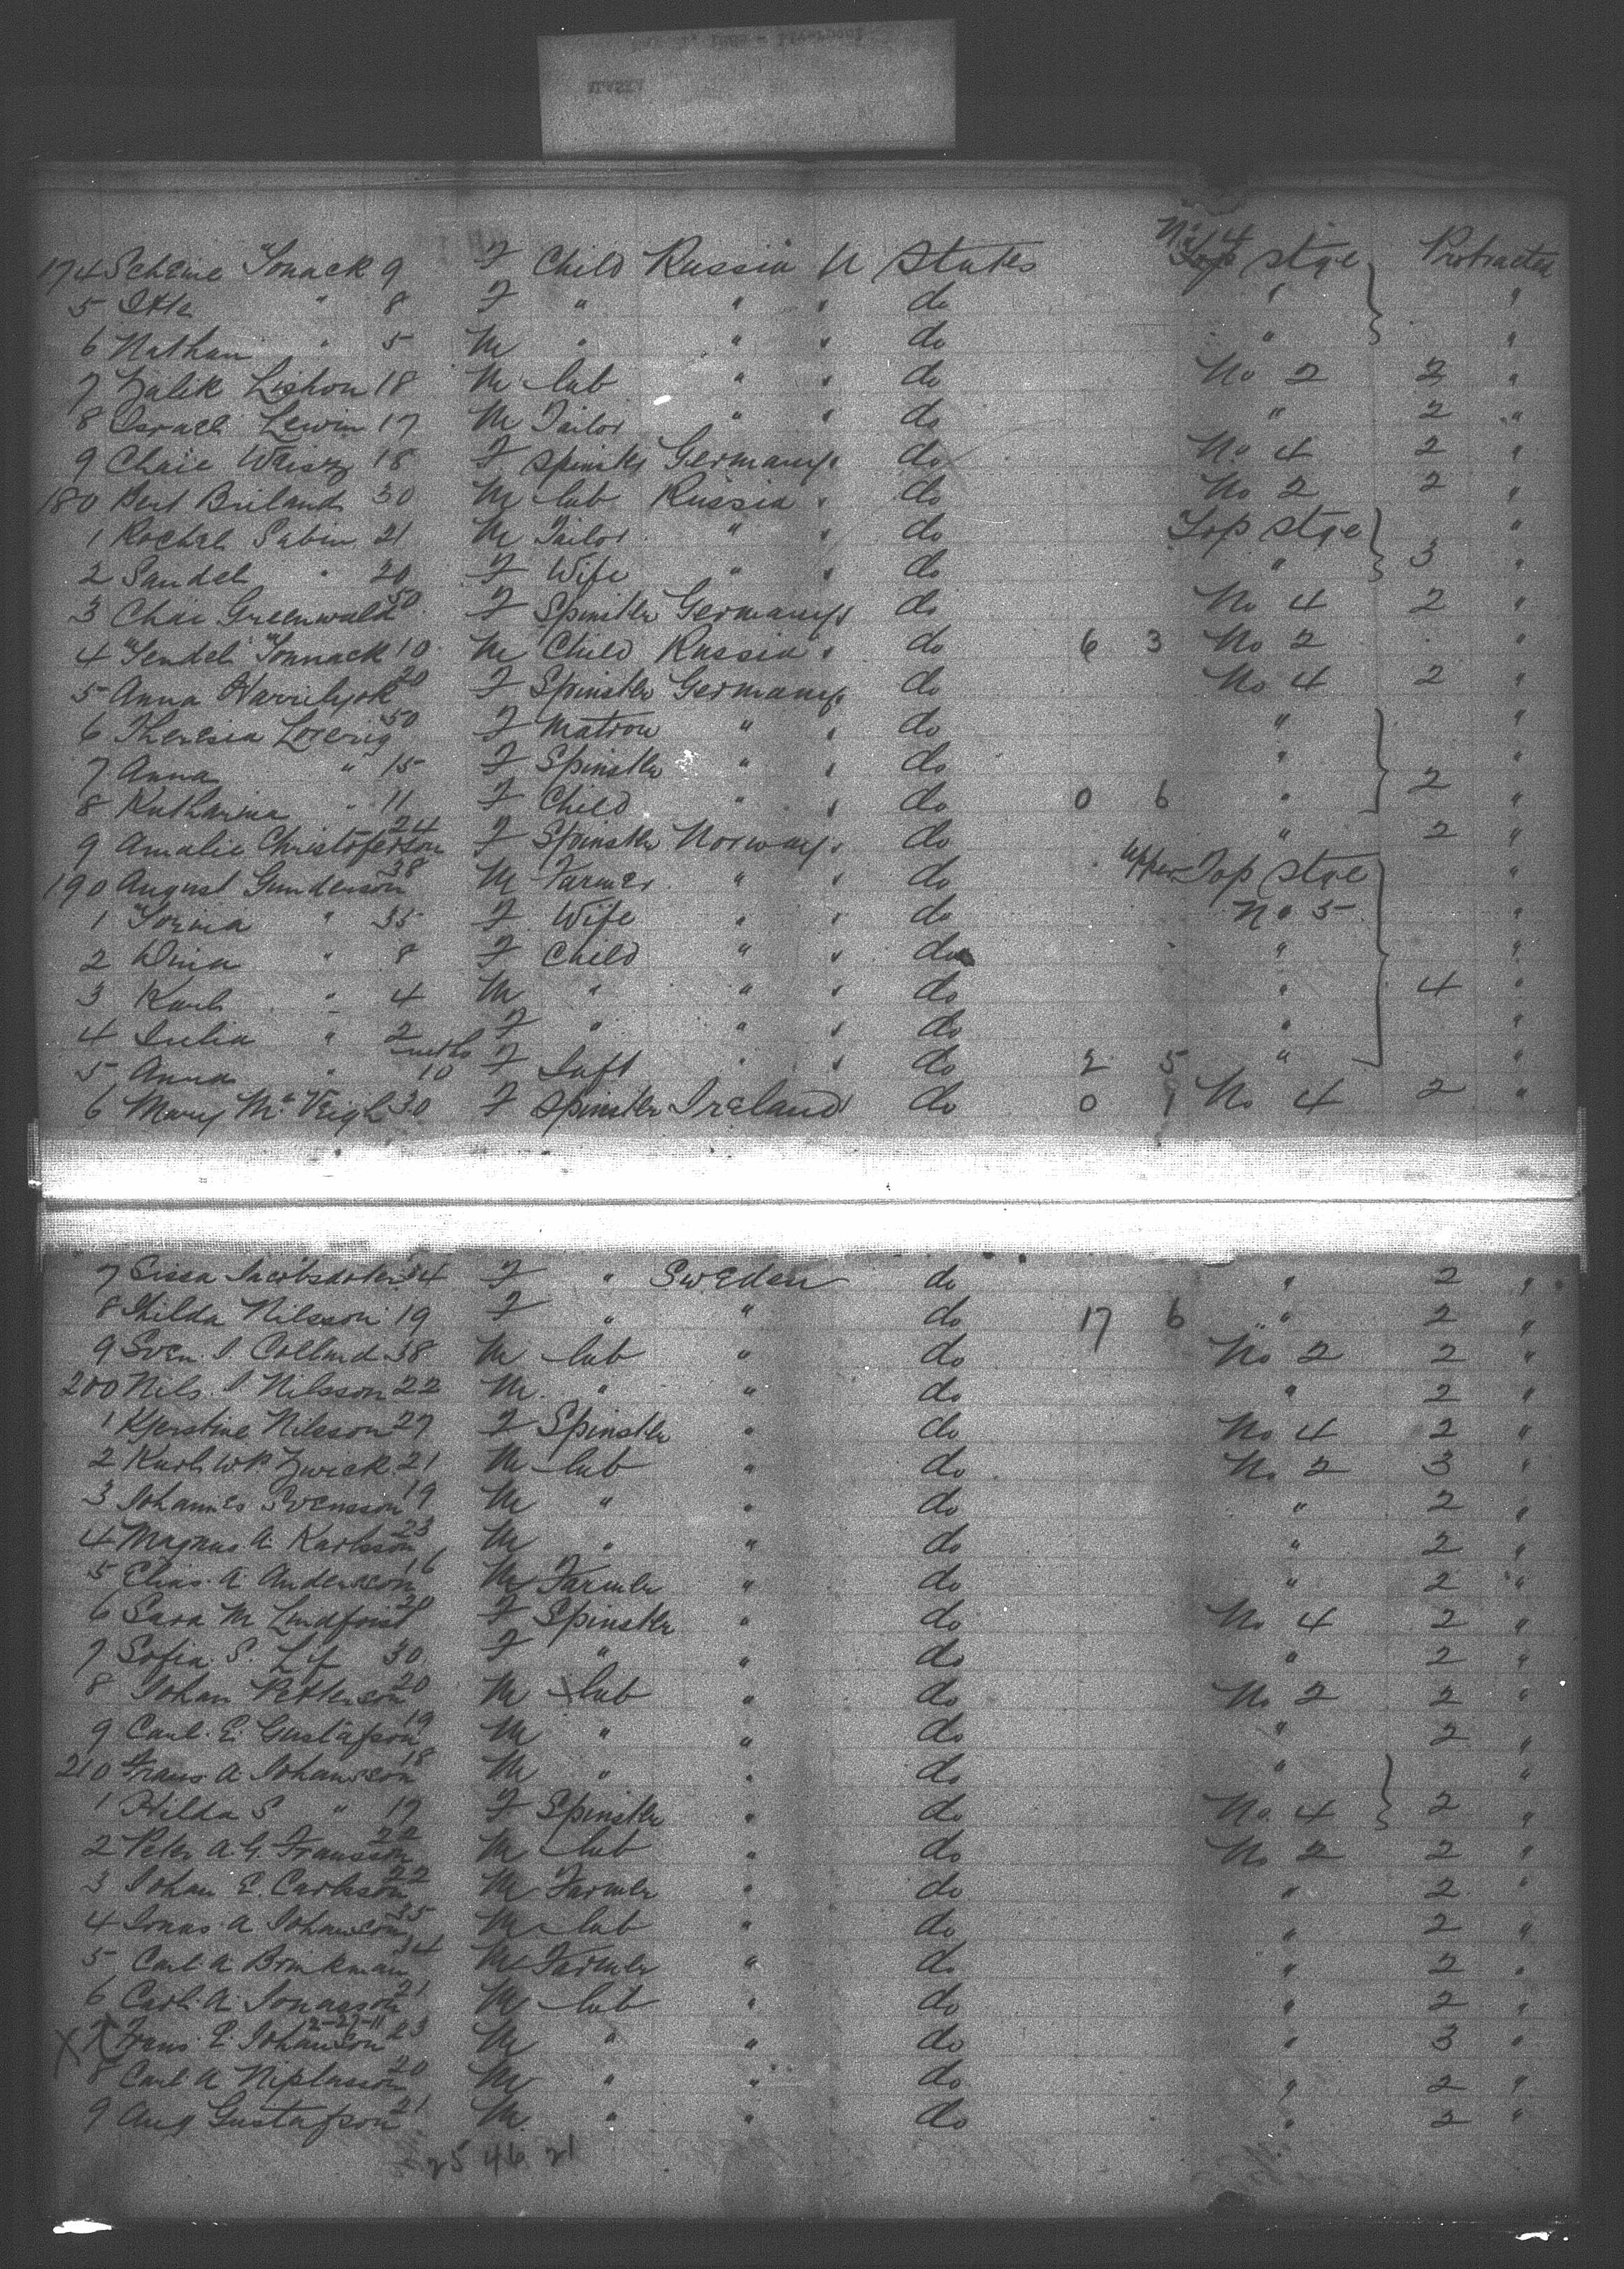 ALASKA
174 Scheine Jonack 9 F Child Russia U States No 4 Top stge Protracted
5 Itte " 8 F " " " do " "
6 Nathan " 5 M " " " do " "
7 Zalik 18 M lab " " do No 2 2 "
8 Israel Lewin 17 M Tailor " " do " 2 "
9 Chaie Weisz 18 F Spinster Germany " do No 4 2 "
180 Bert Briland 30 M lab Russia " do No 2 2 "
1 Rochel Sabin 21 M Tailor " " do Top stge "
2 Sandel " 20 F Wife " " do " 3 "
3 Chae Greenwald 50 F Spinster Germany " do No 4 2 "
4 Jendel Jonnack 10 M Child Russia " do 6 3 No 2 "
5 Anna 20 F Spinster Germany " do No 4 2 "
6 Theresia 50 F Matron " " do " "
7 Anna " 15 F Spinster " " do " "
8 Katharina " 11 F Child " " do 0 6 " 2 "
9 Amalie Christoferson 24 F Spinster Norway " do " 2 "
190 August Gunderson 38 M Farmer " " do Upper Top stge "
1 " 35 F Wife " " do No 5 "
2 Dina " 8 F Child " " do " "
3 Karl " 4 M " " " do " 4 "
4 Julia " 2 F " " " do " "
5 Anna " mths 10 F Inft " " do 2 5 " "
6 Mary McVeigh 30 F Spinster Ireland do 0 1 No 4 2 "
7 Sissa 34 F " Sweden do " 2 "
8 Hilda Nilsson 19 F " " do 17 6 " 2 "
9 Sven I. Collard 38 M lab " do No 2 2 "
200 Nils I Nilsson 22 M " " do " 2 "
1 Kjerstine Nilsson 27 F Spinster " do No 4 2 "
2 Karl W.P. Zwick 21 M lab " do No 2 3 "
3 Johannes Svensson 19 M " " do " 2 "
4 Magnus A. Karlsson 23 M " " do " 2 "
5 Elias A. Andersson 16 M Farmer " do " 2 "
6 Sara M F Spinster " do No 4 2 "
7 Sofia S. 30 F " " do " 2 "
8 Johan Petterson 20 M lab " do No 2 2 "
9 Carl E. Gustafson 19 M " " do " 2 "
210 Frans A Johansson 18 M " " do " "
1 Hilda S " 17 F Spinster " do No 4 2 "
2 Peter A.G. Fransson 22 M lab " do No 2 2 "
3 Johan E. Carlsson 22 M Farmer " do " 2 "
4 Jonas A Johansson 35 M lab " do " 2 "
5 Carl A Brinkman 34 M Farmer " do " 2 "
6 Carl A Jonasson 21 M lab " do " 2 "
X 7 Frans E. Johanson 2-27-11 23 M " " do " 3 "
8 Carl A 20 M " " do " 2 "
9 Aug Gustafson 21 M " " do " 2 "
25 46 21